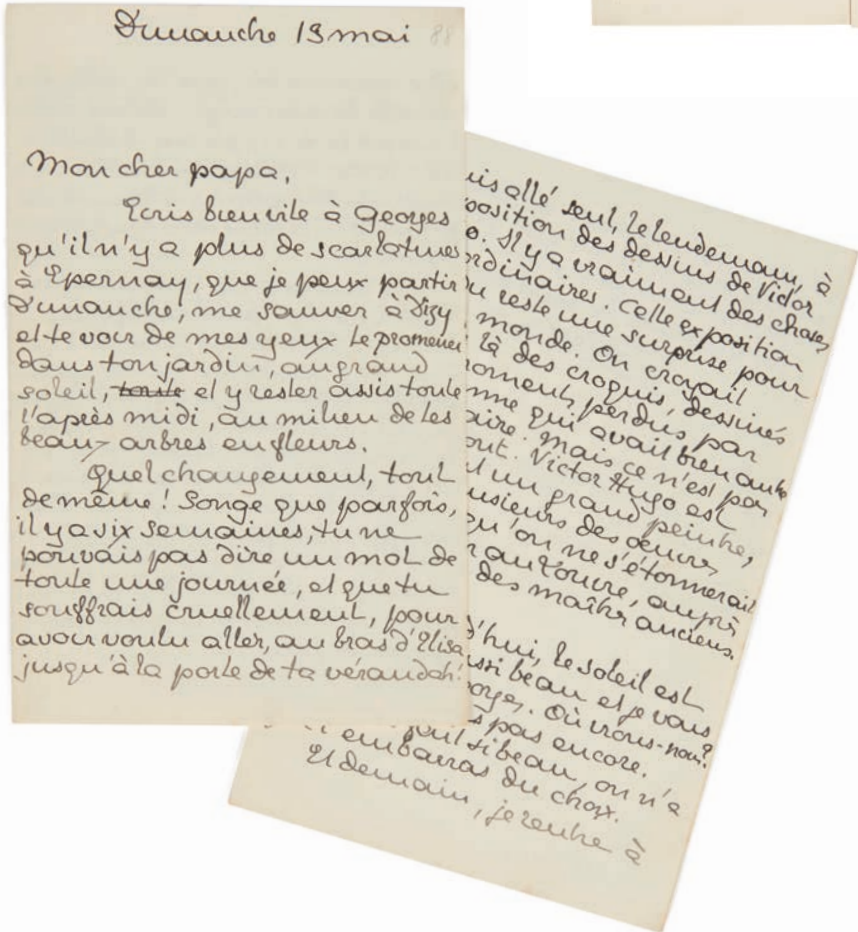 Dimanche 13 mai 88
Mon cher papa,
Ecris bien vite à Georges
qu'il n'y a plus de scarlatines
à Epernay, que je peux partir
Dimanche, me sauver à Dizy
et te voir de mes yeux te promener
dans ton jardin, au grand
soleil, toute et y rester assis toute
l'après midi, au milieu de tes
beaux arbres en fleurs.
Quel changement, tout
de même! Songe que parfois,
il y a six semaines, tu ne
pouvais pas dire un mot de
toute une journée, et que tu
souffrais cruellement, pour
avoir voulu aller, au bras d'Elisa
jusqu'à la porte de ta vérandah!
uis allé seul, le lendemain, à
position des dessins de Victor
o. Il y a vraiment des choses
ordinaires. Cette exposition
u reste une surprise pour
monde. On croyait
là des croquis, dessinés
moments perdus par
mme qui avait bien autre
aire. Mais ce n'est pas
out. Victor Hugo est
t un grand peintre,
usieurs des œuvres
qu'on ne s'étonnerait
r au Louvre, auprès
des maîtres anciens.
d'hui, le soleil est
ussi beau et je vais
orges. Où irons-nous?
s pas encore.
fait si beau, on n'a
l'embarras du choix.
Et demain, je rentre à